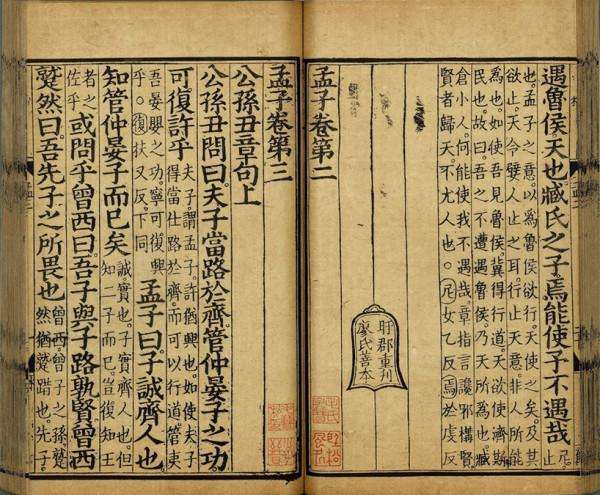 遇魯侯天也臧氏之子焉能使子不遇哉尼
也。孟子之意。以為魯侯欲行。天使之矣。及其
欲止。天令嬖人止之耳。行止天意。非人所能
為也。如使吾見魯侯。冀得行道。天欲使濟斯
民也。故曰。吾之不遭遇魯侯。乃天所為也。臧
倉小人。何能使我不遇哉。章指言讒邪構賢
賢者歸天。不尤人也。○尼女乙反焉於虔反
孟子卷第二
旴郡重刊
廖氏善本
孟子卷第三
公孫丑章句上
公孫丑問曰。夫子當路於齊。管仲晏子之功。
可復許乎
夫子。謂孟子。許猶興也。如使夫子
得當仕路於齊。而可以行道。管夷
吾晏嬰之功。寧可復興
乎。○復扶又反。下同
孟子曰子誠齊人也
知管仲晏子而已矣
誠實也。子實齊人也。但
知二子而已。豈復知王
者之
佐乎
或問乎曾西曰。吾子與子路孰賢曾西
蹵然曰。吾先子之所畏也
曾西。曾子之孫。蹵
然猶蹵踖也。先子